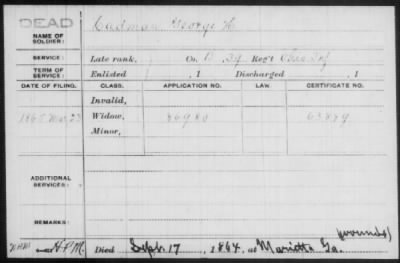 DEAD
NAME OF SOLDIER: Cadman George H
SERVICE: Late rank, Co. B 39 Reg't Ohio Inf
TERM OF SERVICE: Enlisted , 1 Discharged , 1
DATE OF FILING. CLASS. APPLICATION NO. LAW. CERTIFICATE NO.
Invalid,
1865 Mar 23 Widow, 86980
Minor,
ADDITIONAL SERVICES:
REMARKS:
(wounds)
Died Sept. 17, 1864, at Marietta Ga.